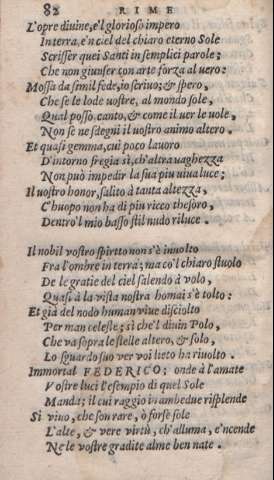 82 RIME
L'opre diuine, e'l glorioso impero
Interra, e'n ciel del chiaro eterno Sole
Scrisser quei Santi in semplici parole;
Che non giunser con arte forza al uero:
Mossa da simil fede, io scriuo; & spero,
Che se le lode uostre, al mondo sole,
Qual posso canto, & come il uer le uole,
Non se ne sdegni il uostro animo altero.
Et quasi gemma, cui poco lauoro
D'intorno fregia sì, ch'altra uaghezza
Non può impedir la sua piu uiua luce;
Il uostro honor, salito à tanta altezza,
C'huopo non ha di piu ricco thesoro,
Dentro'l mio basso stil nudo riluce.
Il nobil vostro spirto non s'è inuolto
Fra l'ombre in terra; ma co'l chiaro stuolo
De le gratie del ciel salendo à volo,
Quasi à la vista nostra homai s'è tolto:
Et già del nodo human viue disciolto
Per man celeste; sì che'l diuin Polo,
Che va sopra le stelle altero, & solo,
Lo sguardo suo ver voi lieto ha riuolto.
Immortal FEDERICO; onde à l'amate
Vostre luci l'esempio di quel Sole
Manda; il cui raggio in ambedue risplende
Sì viuo, che son rare, ò forse sole
L'alte, & vere virtù, ch'alluma, e'ncende
Ne le vostre gradite alme ben nate.